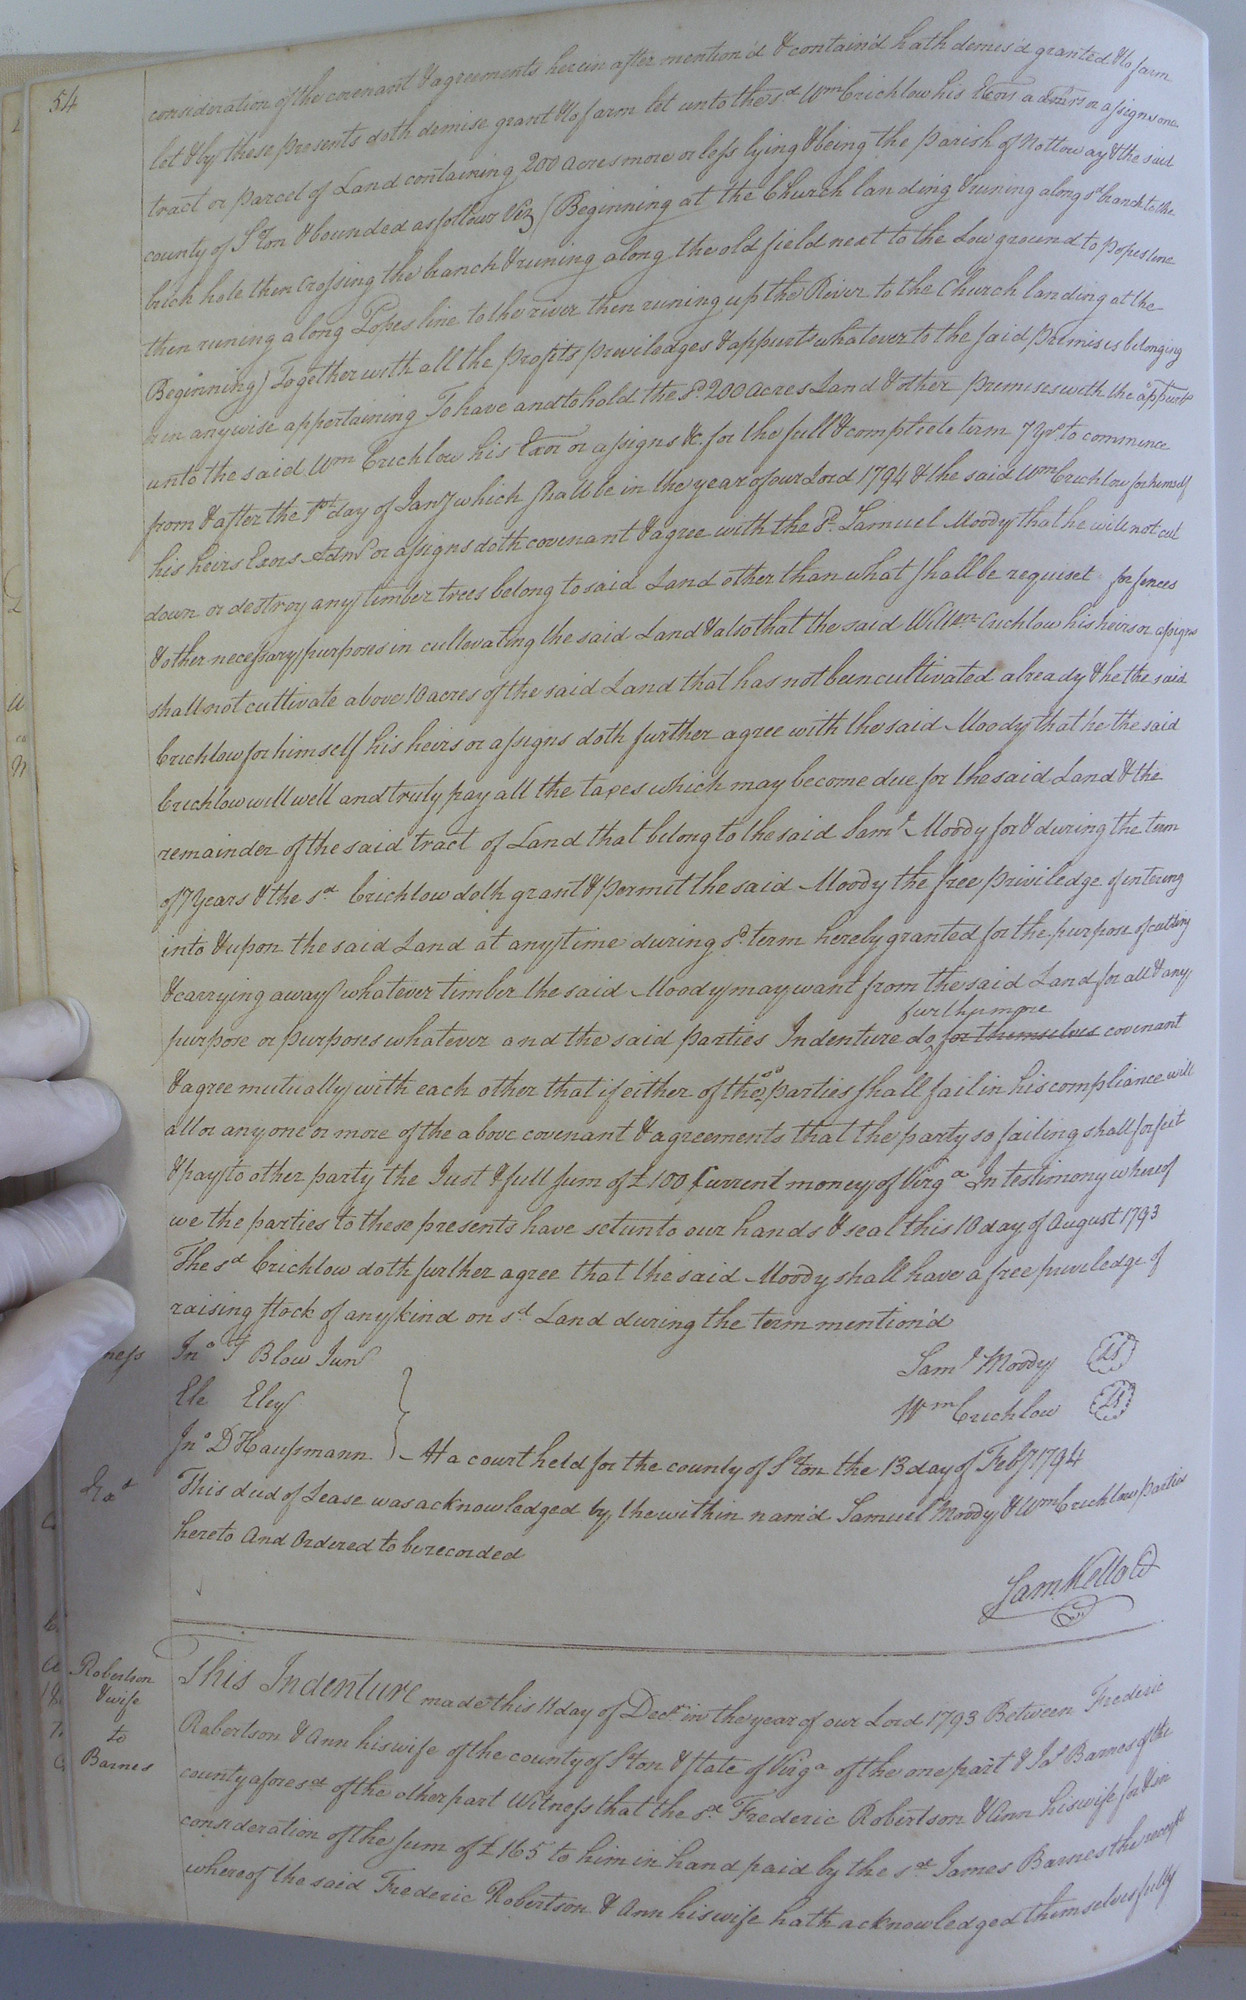 54
consideration of the covenant & agreements herein after mention'd & contain'd hath demis'd granted & to farm
let & by these presents doth demise grant & to farm let unto the sd Wm Crichlow his Exors admrs or assigns one
tract or parcel of Land containing 200 acres more or less lying & being the parish of Nottoway & the said
county of S'ton & bounded as follows Viz (Beginning at the Church landing & runing along sd branch to the
brick hole then Crossing the branch & runing along the old field next to the Low ground to popes line
then runing along Popes line to the river then runing up the River to the Church landing at the
Beginning) Together with all the profits priviledges & appurts whatever to the said Premises belonging
or in anywise appertaining To have and to hold the sd 200 acres Land & other premises with the appurts
unto the said Wm Crichlow his Exor or assigns &c. for the full & compleete term 7 yrs to commence
from & after the 1st day of Jany which shall be in the year of our Lord 1794 & the said Wm Crichlow for himself
his heirs Exors Adms or assigns doth covenant & agree with the sd Samuel Moody that he will not cut
down or destroy any timber trees belong to said Land other than what shall be requiset for fences
& other necessary purposes in cultevating the said Land & also that the said Willm Crichlow his heirs or assigns
shall not cultivate above 10 acres of the said Land that has not been cultivated already & he the said
Crichlow for himself his heirs or assigns doth further agree with the said Moody that he the said
Crichlow will well and truly pay all the taxes which may become due for the said Land & the
remainder of the said tract of Land that belong to the said Saml Moody for & during the term
of 7 years & the sd Crichlow doth grant & permit the said Moody the free priviledge of intering
into & upon the said Land at any time during sd term hereby granted for the purpose of cutting
& carrying away whatever timber the said Moody may want from the said Land for all & any
furthermore
purpose or purposes whatever and the said parties Indenture do for themselves covenant
& agree mutually with each other that if either of the sd parties shall fail in his compliance will
all or any one or more of the above covenant & agreements that the party so failing shall forfeit
& pay to other party the Just & full sum of £100 Current money of Virga In testimony whereof
we the parties to these presents have set unto our hands & seal this 10 day of August 1793
The sd Crichlow doth further agree that the said Moody shall have a free priviledge of
raising stock of any kind on sd Land during the term mention'd
Jno T Blow Junr
Saml Moody LS
Ele Eley
Wm Crichlow LS
Jno D Haussmann
At a court held for the county of S'ton the 13 day of Feby 1794
This deed of Lease was acknowledged by the within nam'd Samuel Moody & Wm Crichlow parties
hereto And Ordered to be recorded
Sam Kello Cl
Robertson
& wife
to
Barnes
This Indenture made this 11 day of Decr in the year of our Lord 1793 Between Frederic
Robertson & Ann his wife of the county of S'ton & State of Virga of the one part & Jas Barnes of the
county aforesd of the other part Witness that the sd Frederic Robertson & Ann his wife for & in
consideration of the sum of £165 to him in hand paid by the sd James Barnes the receipt
whereof the said Frederic Robertson & Ann his wife hath acknowledged themselves fully